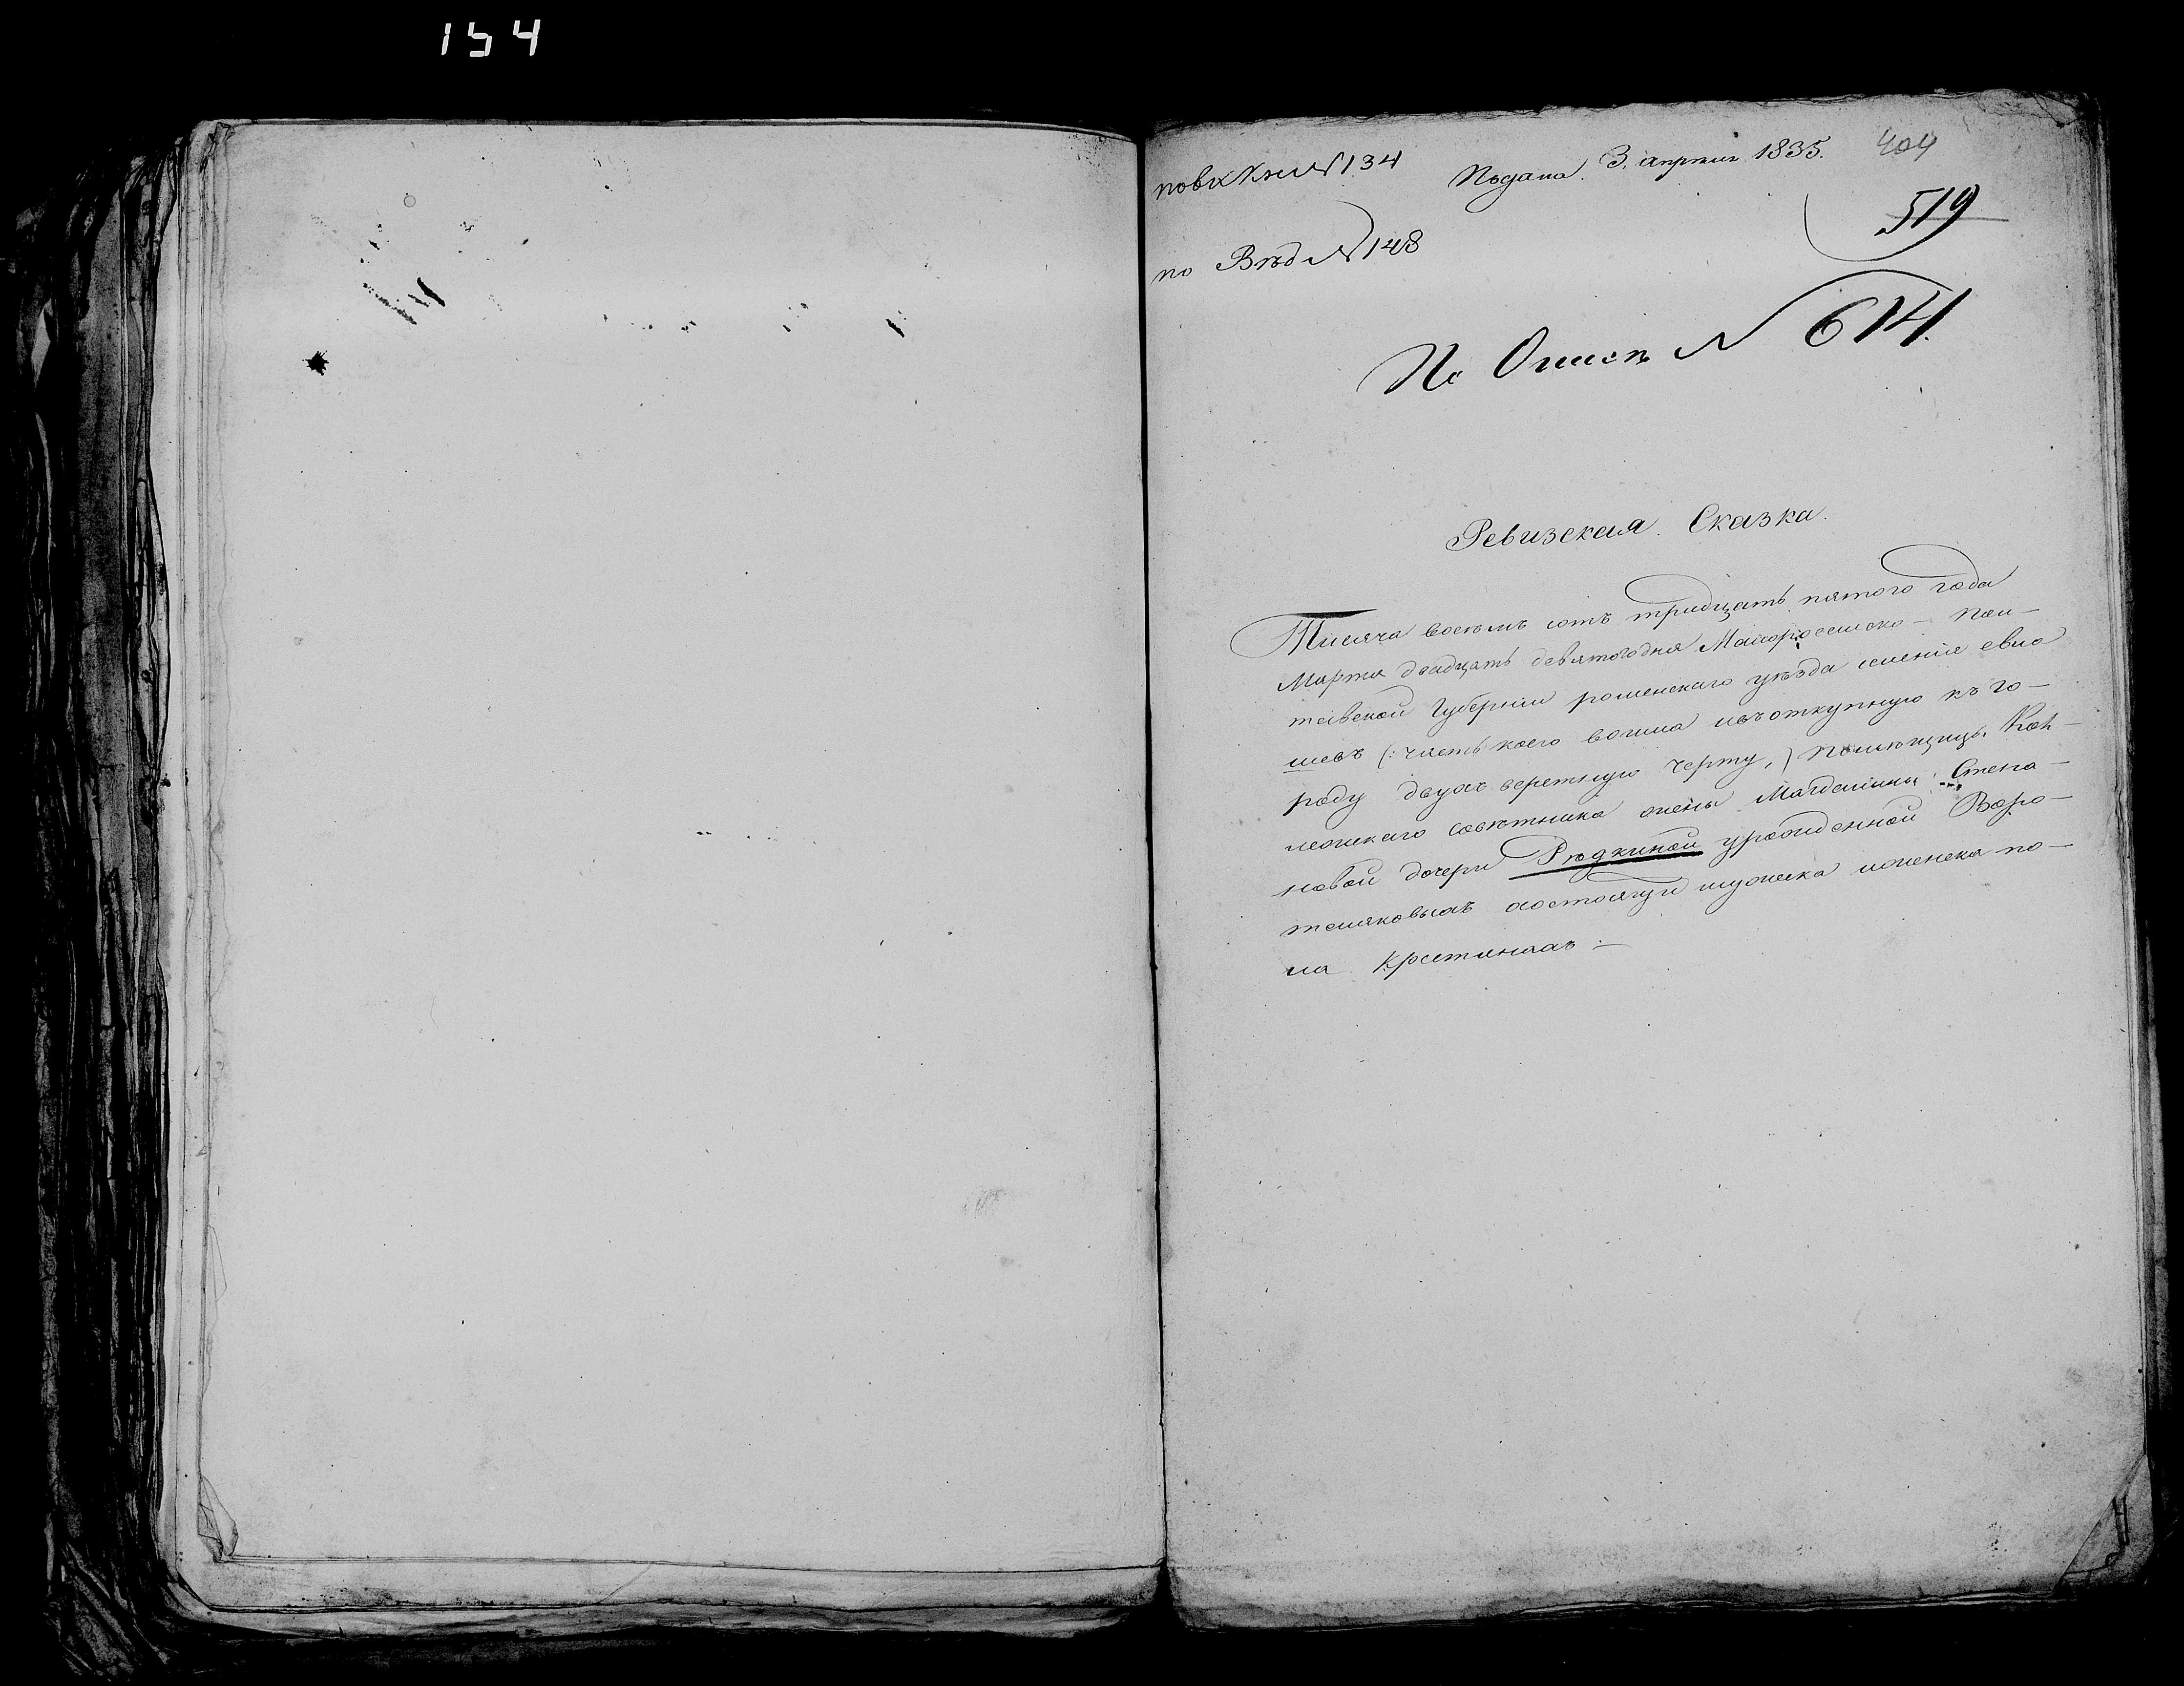 154
по вх Кни № 134
Подана. 3. апреля 1835.
404
519
по Вѣд № 148
По Описи № 614.
Ревизская Сказка.
Тисяча восемъ сотъ тридцать пятого года
Марта двадцать девятогодня Малоросейско – Пол–
тавской Губернии роменскаго уѣзда имѣние
(: часть коего вошла въ откупную къ го–
роду двухъ верстную черту,) Помѣщицы Кол–
лежскаго совѣтника жены Магдалины Степа–
новой дочери Рѣдкиной урожденной Воро–
теляковыхъ состоящи мужеска иженска по–
ла Крстинахъ –